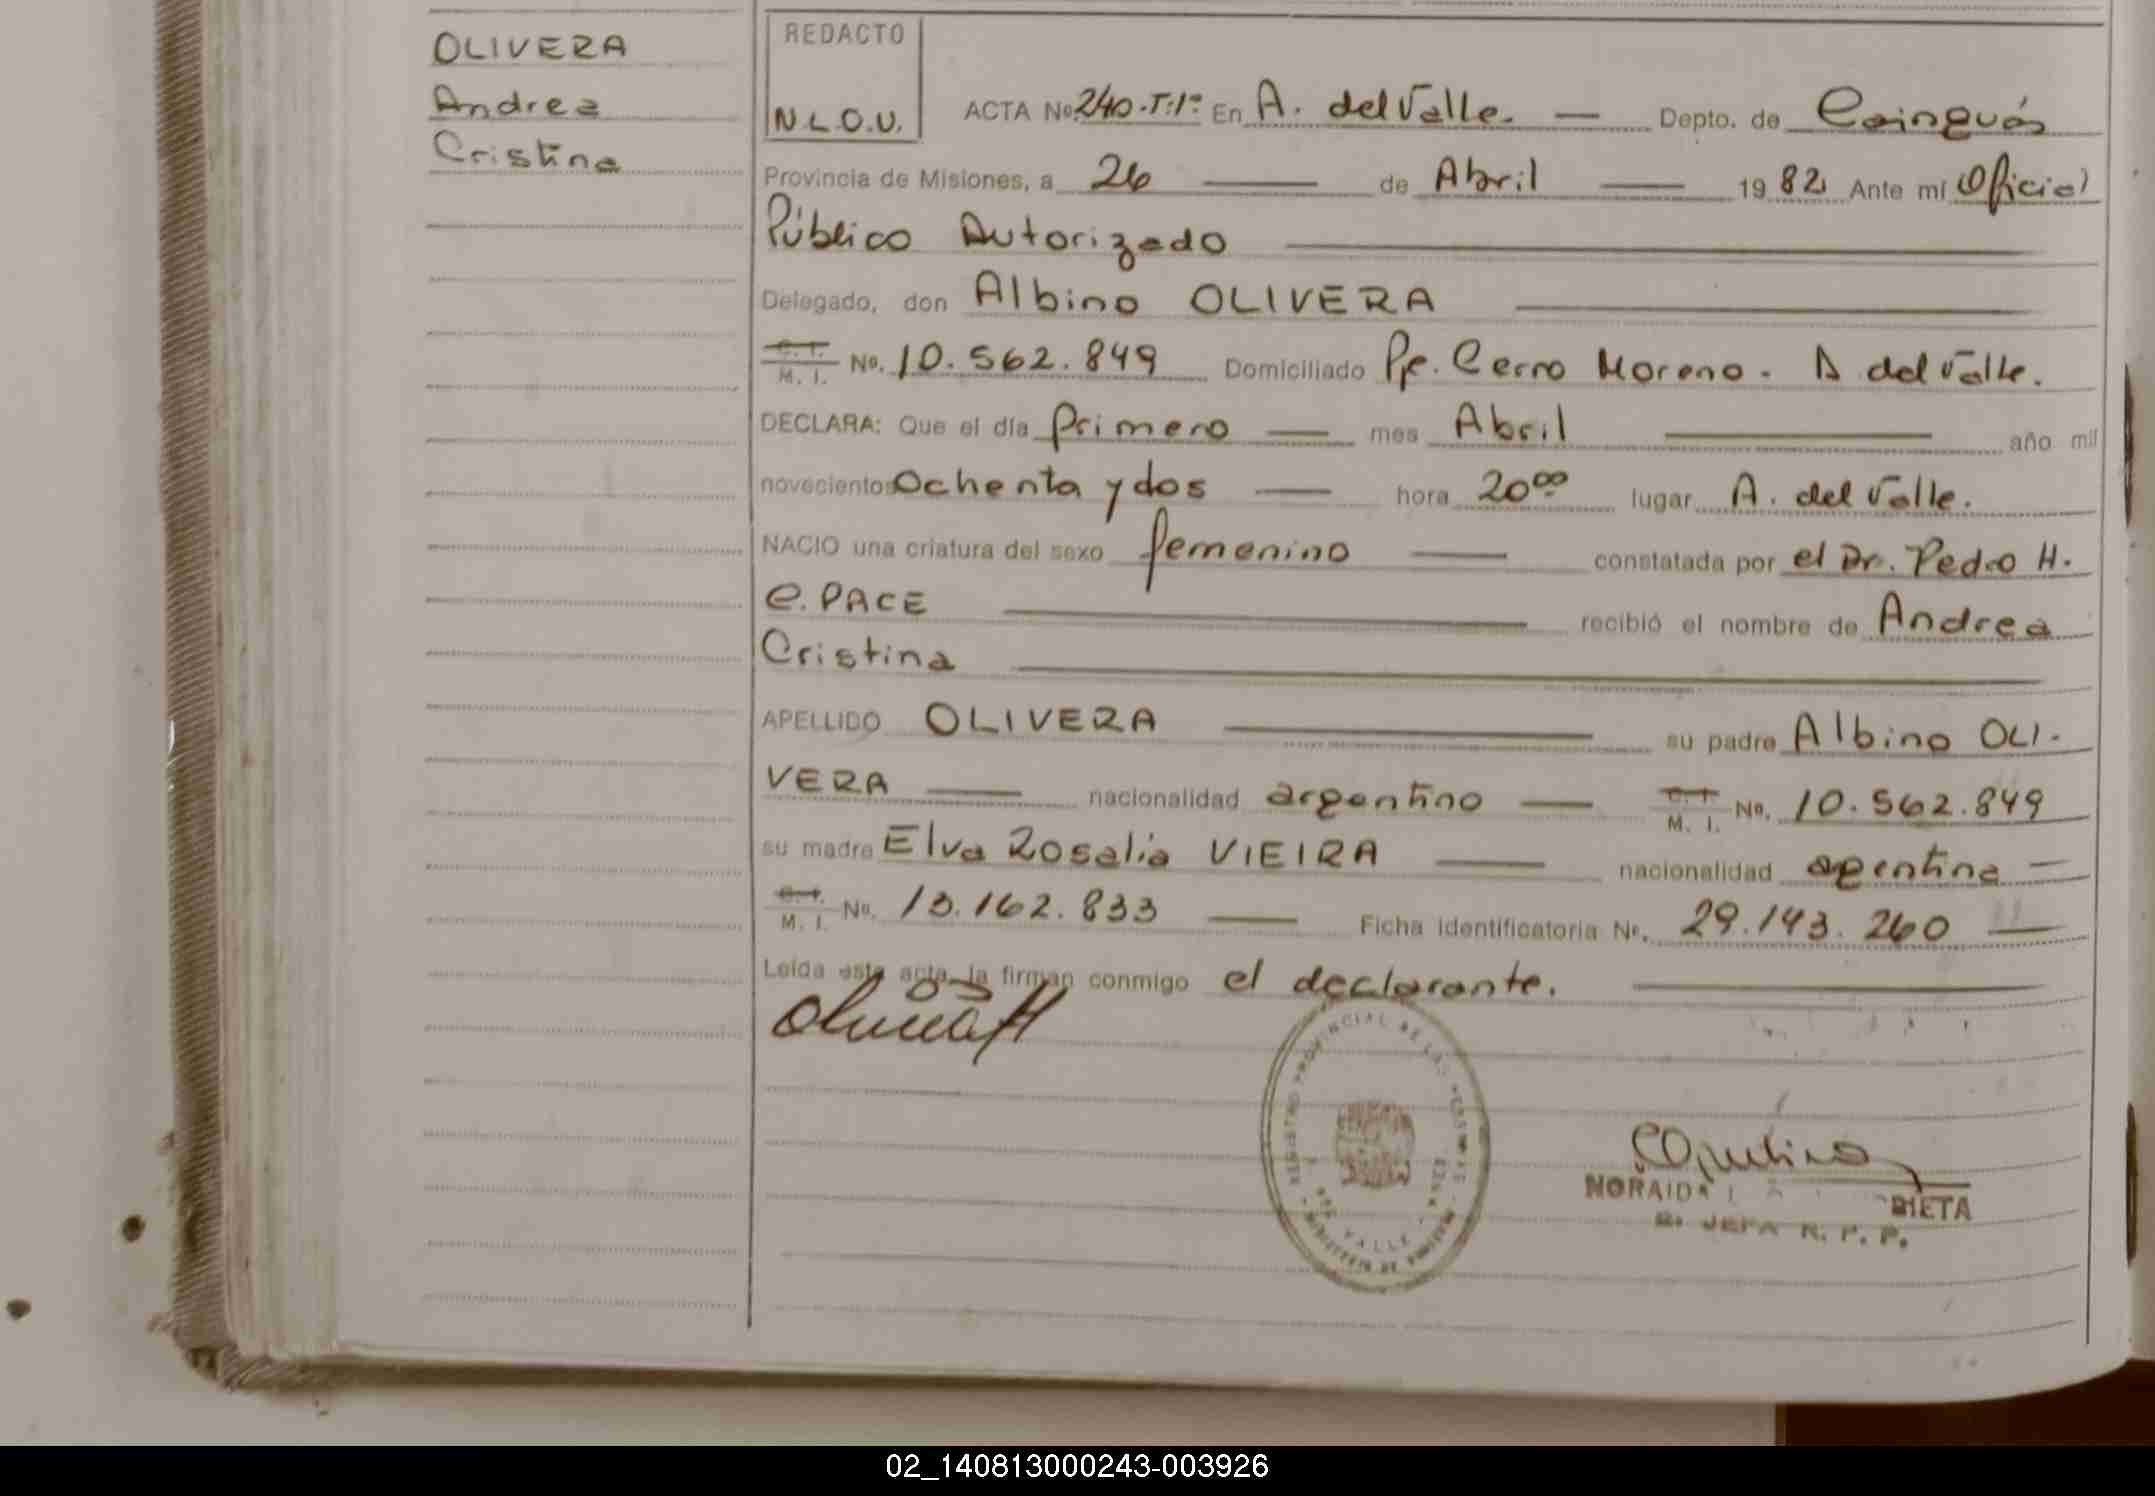 OLIVERA
Andrea
Cristina
REDACTO
N.L.O.U.
ACTA Nº 240.T:1º En A. del Valle. — Depto. de Cainguás
Provincia de Misiones, a 26 — de Abril — 19 82 Ante mí Oficial
Público Autorizado
Delegado, don Albino OLIVERA
C. I. M. I. No. 10.562.849 Domiciliado Pje. Cerro Moreno. A del Valle.
DECLARA: Que el día primero — mes Abril — año mil
novecientos Ochenta y dos — hora 20⁰⁰ lugar A. del Valle.
NACIO una criatura del sexo femenino — constatada por el Dr. Pedro H.
C. PACE — recibió el nombre de Andrea
Cristina
APELLIDO OLIVERA — su padre Albino OLI-
VERA — nacionalidad argentino — C. I. M. I. No. 10.562.849
su madre Elva Rosalia VIEIRA — nacionalidad argentina —
C. I. M. I. No. 13.162.833 — Ficha identificatoria No. 29.143.260 —
Leída esta acta, la firman conmigo el declarante.
REGISTRO PROVINCIAL DE LAS PERSONAS
DEL VALLE
NORAIDA
2da JEFA R. P. P.
02_140813000243-003926